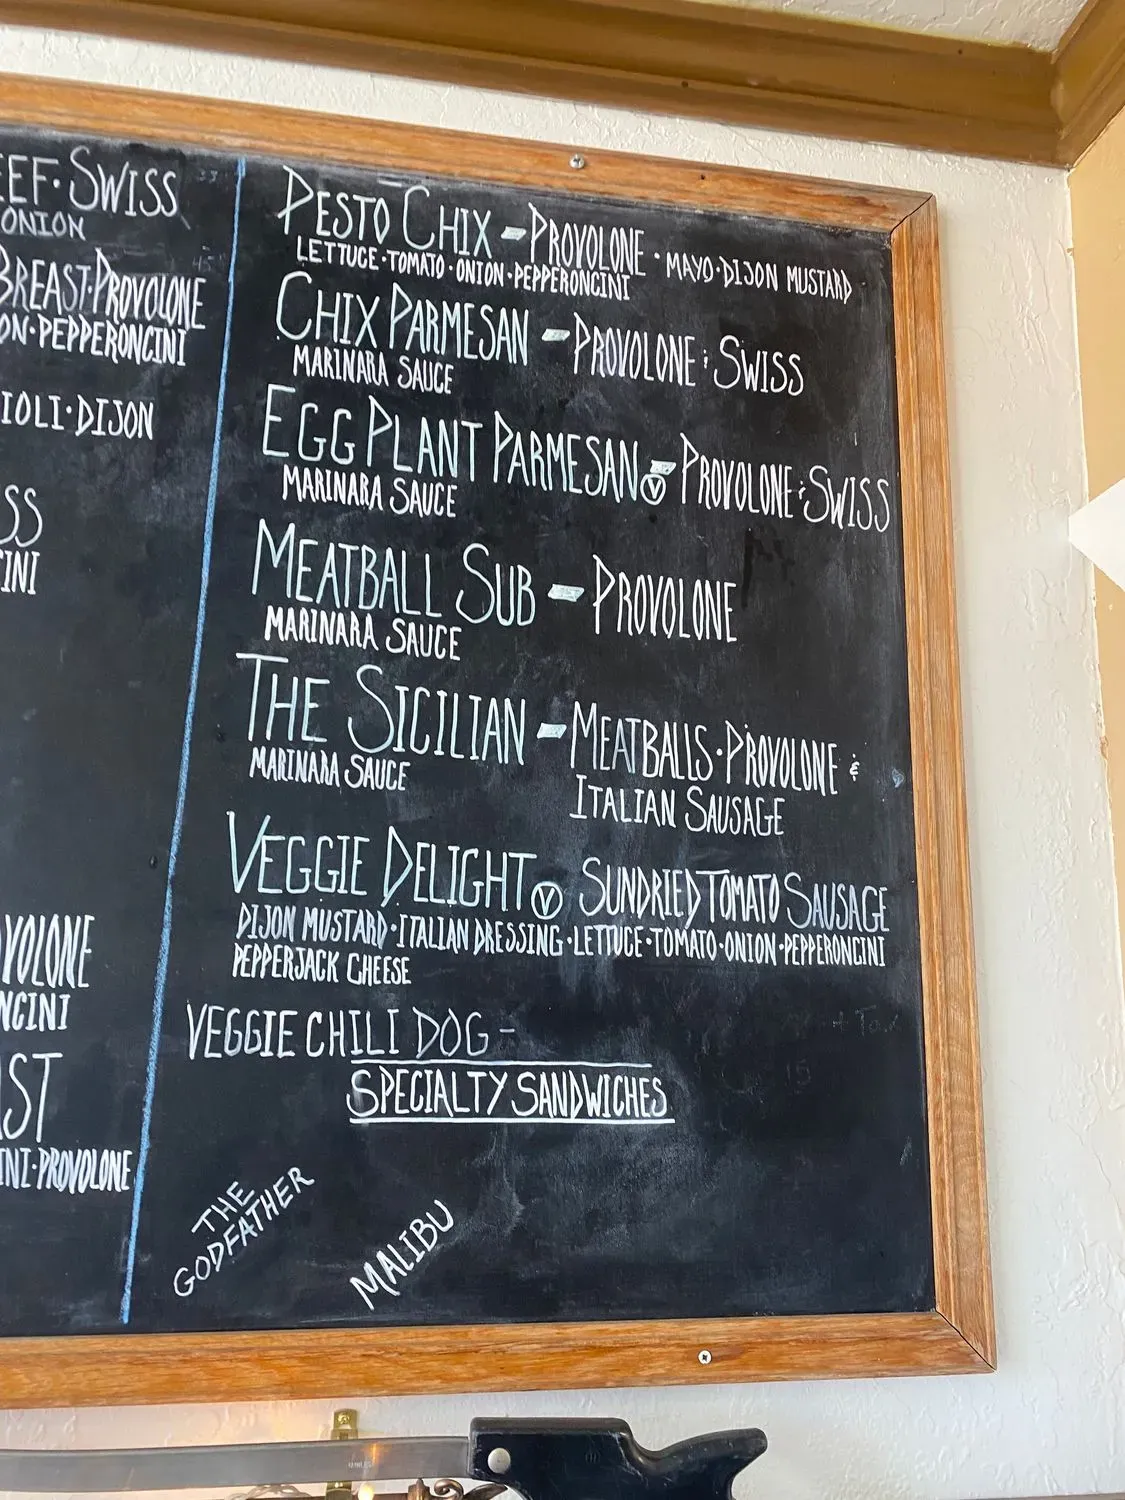 EEF·SWISS
ONION
BREAST·PROVOLONE
ON·PEPPERONCINI
IOLI·DIJON
SS
INI
VOLONE
NCINI
AST
INI·PROVOLONE
PESTO CHIX - PROVOLONE · MAYO·DIJON MUSTARD
LETTUCE·TOMATO·ONION·PEPPERONCINI
CHIX PARMESAN - PROVOLONE & SWISS
MARINARA SAUCE
EGG PLANT PARMESAN Ⓥ - PROVOLONE & SWISS
MARINARA SAUCE
MEATBALL SUB - PROVOLONE
MARINARA SAUCE
THE SICILIAN - MEATBALLS·PROVOLONE &
MARINARA SAUCE ITALIAN SAUSAGE
VEGGIE DELIGHT Ⓥ SUNDRIED TOMATO SAUSAGE
DIJON MUSTARD·ITALIAN DRESSING·LETTUCE·TOMATO·ONION·PEPPERONCINI
PEPPERJACK CHEESE
VEGGIE CHILI DOG -
SPECIALTY SANDWICHES
THE
GODFATHER
MALIBU